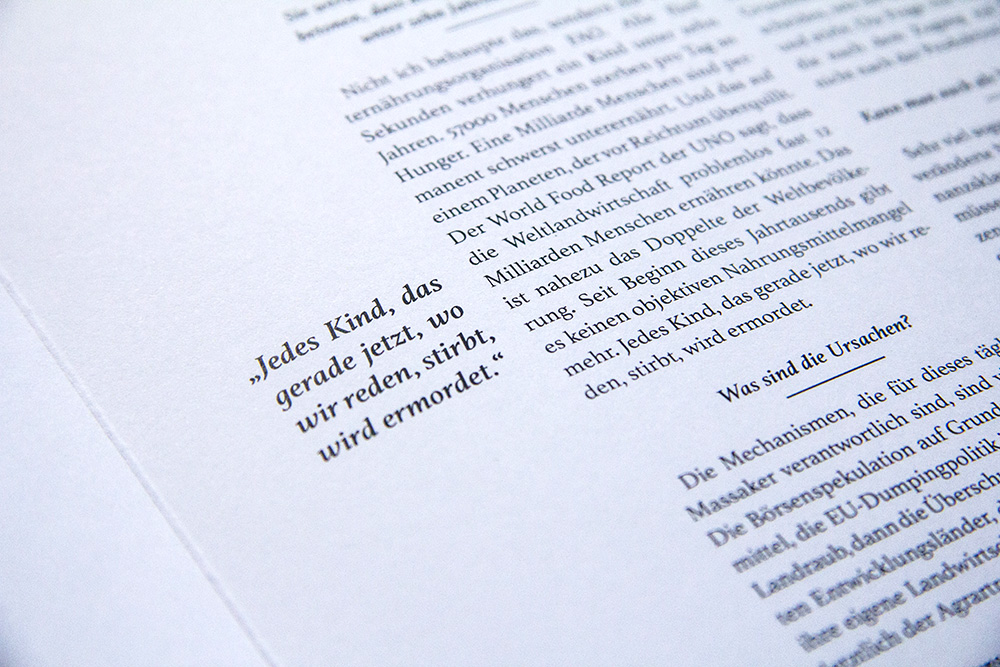 Sie
betonen, dass
unter zehn Jahren
Nicht ich behaupte das, sondern die
ternährungsorganisation FAO. Alle fünf
Sekunden verhungert ein Kind unter zehn
Jahren. 57000 Menschen sterben pro Tag an
Hunger. Eine Milliarde Menschen sind per-
manent schwerst unterernährt. Und das auf
einem Planeten, der vor Reichtum überquillt.
Der World Food Report der UNO sagt, dass
die Weltlandwirtschaft problemlos fast 12
Milliarden Menschen ernähren könnte. Das
ist nahezu das Doppelte der Weltbevölke-
rung. Seit Beginn dieses Jahrtausends gibt
es keinen objektiven Nahrungsmittelmangel
mehr. Jedes Kind, das gerade jetzt, wo wir re-
den, stirbt, wird ermordet.
„Jedes Kind, das
gerade jetzt, wo
wir reden, stirbt,
wird ermordet.“
Was sind die Ursachen?
Die Mechanismen, die für dieses täg
Massaker verantwortlich sind, sind
Die Börsenspekulation auf Grund
mittel, die EU-Dumpingpolitik
Landraub, dann die Übersch
ten Entwicklungsländer,
ihre eigene Landwirtsc
der Agrartr
Kann man auch als
Sehr viel
verändern
nanzskl
müssen
zen